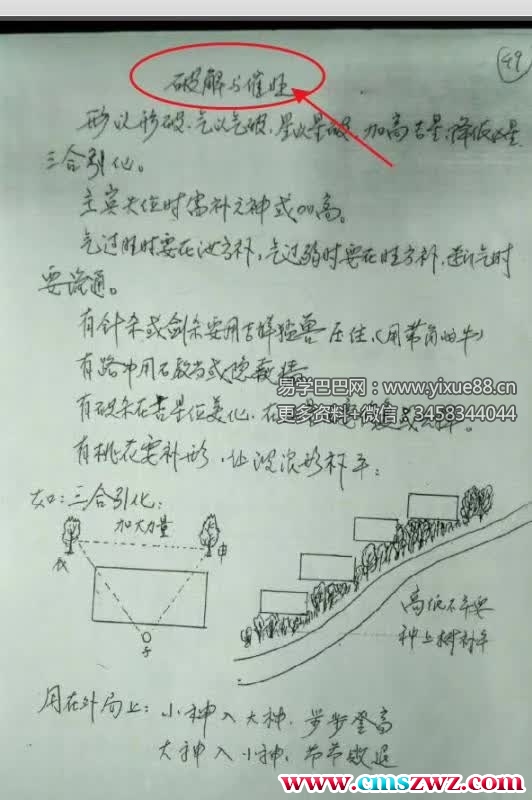 49
破解与催旺
形以形破,气以气破,星以星破,加高吉星,降低凶星
三合引化。
主宾失位时需补之神或加高。
气过旺时要在泄方补,气过弱时要在旺方补,逆气时
要流通。
有针杀或剑杀要用吉祥猛兽压住,(用带角的牛)
有路冲用石敢当或
有破杀在吉星位美化,在
有桃花要补形,让波浪形补平:
易学巴巴网:www.yixue88.cn
更多资料+微信:3458344044
如:三合引化:
加大力量
戌
申
子
高低不平要
种上树补平
用在外局上:小神入大神,步步登高
大神入小神,节节败退
www.cmszwz.com